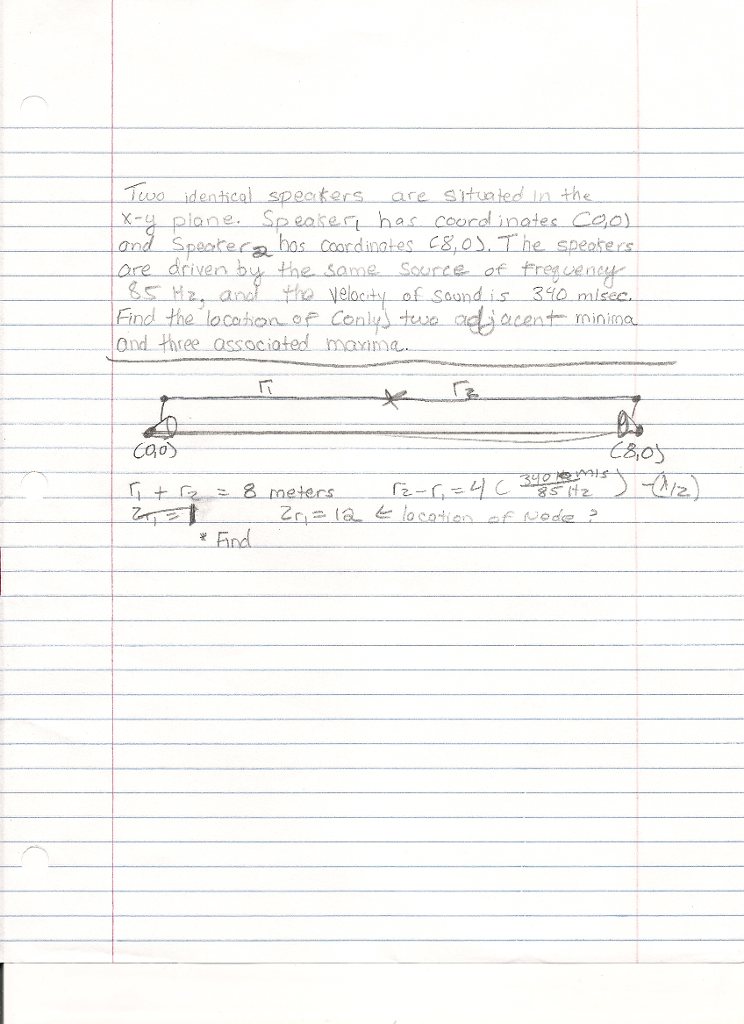 Two identical speakers are situated in the
x-y plane. Speaker1 has coordinates (0,0)
and Speaker2 has coordinates (8,0). The speakers
are driven by the same source of frequency
85 Hz, and the velocity of sound is 340 m/sec.
Find the location of (only) two adjacent minima
and three associated maxima.
r1 r2
(0,0) (8,0)
r1 + r2 = 8 meters r2-r1 = 4 ( 340 m/s / 85 Hz ) - (λ/2)
2r1 = 2r1 = 12 ← location of Node ?
* Find